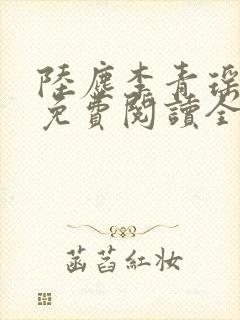 陸塵李青瑤
免費閱讀全
菡萏紅妝